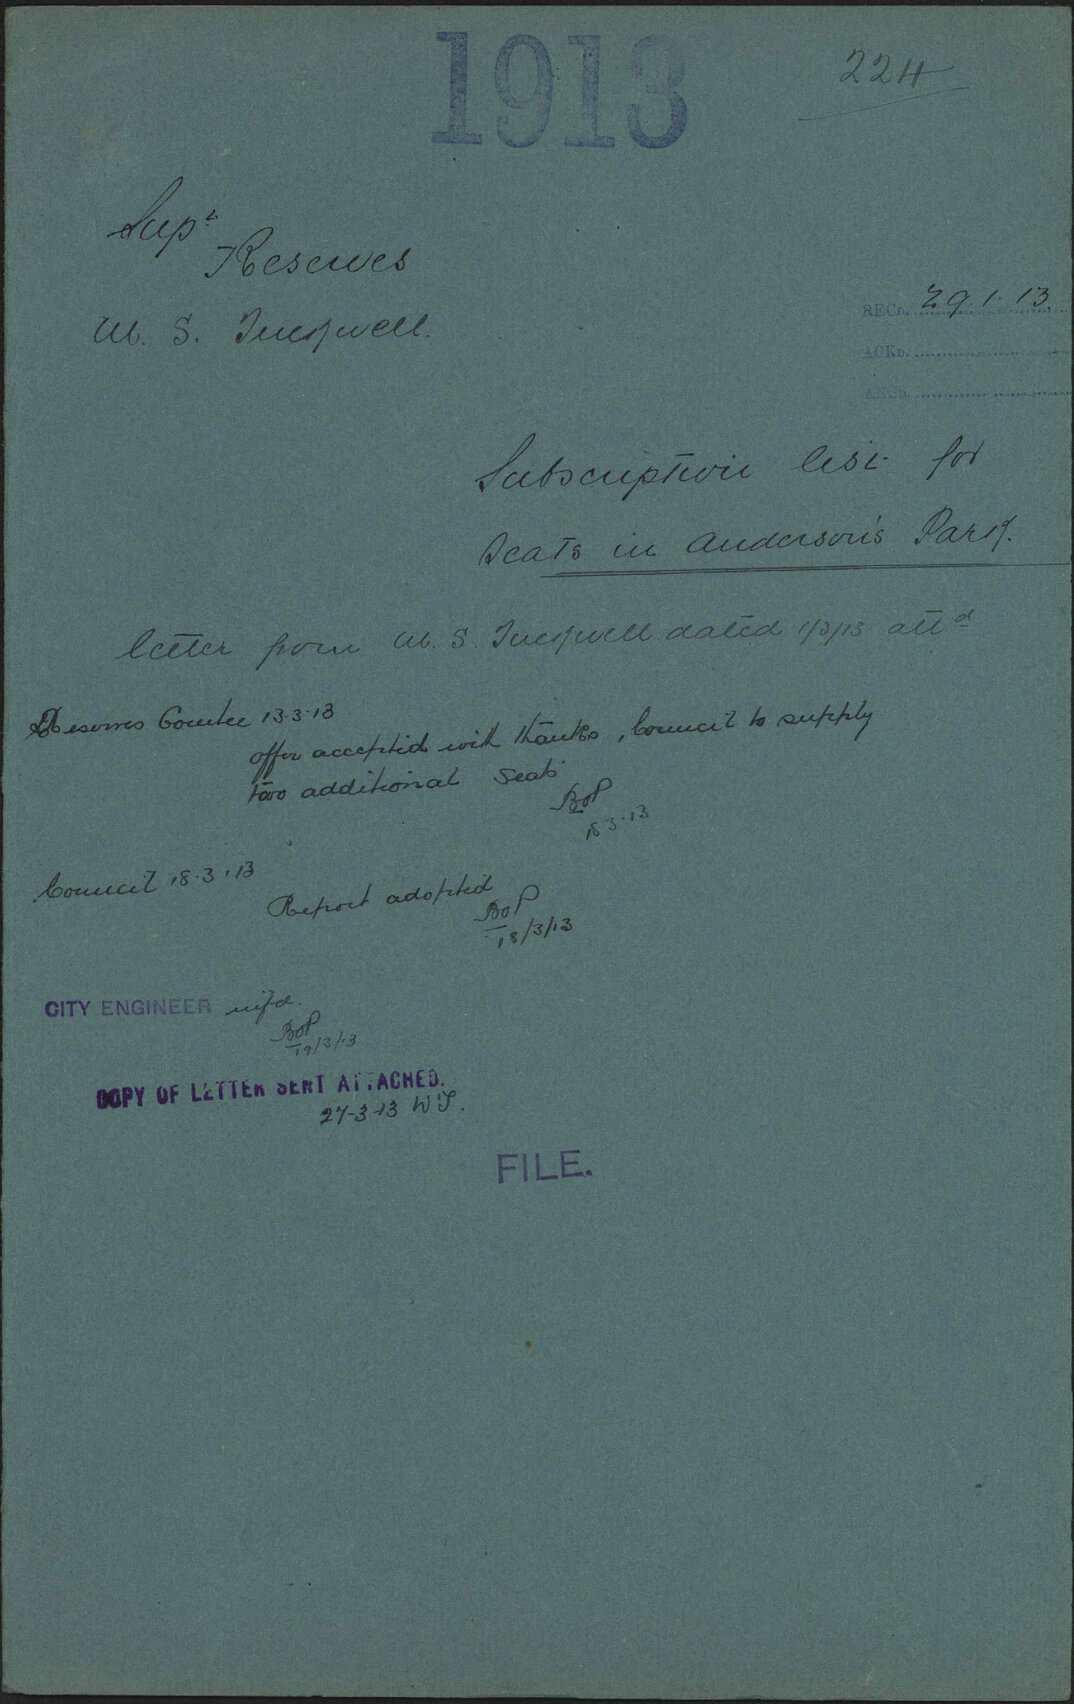 1913
224
Supt
Reserves
W. S. Tuckwell.
RECD. 29.1.13.
ACKD.
ANSD.
Subscription list for
Seats in Anderson's Park.
letter from W. S. Tuckwell dated 1/3/13 attd
Reserves Comtee 13.3.13
offer accepted with thanks, Council to supply
two additional seats
18.3.13
Council 18.3.13
Report adopted
18/3/13
CITY ENGINEER nifd.
19/3/13
COPY OF LETTER SENT ATTACHED.
27-3-13 W.J.
FILE.